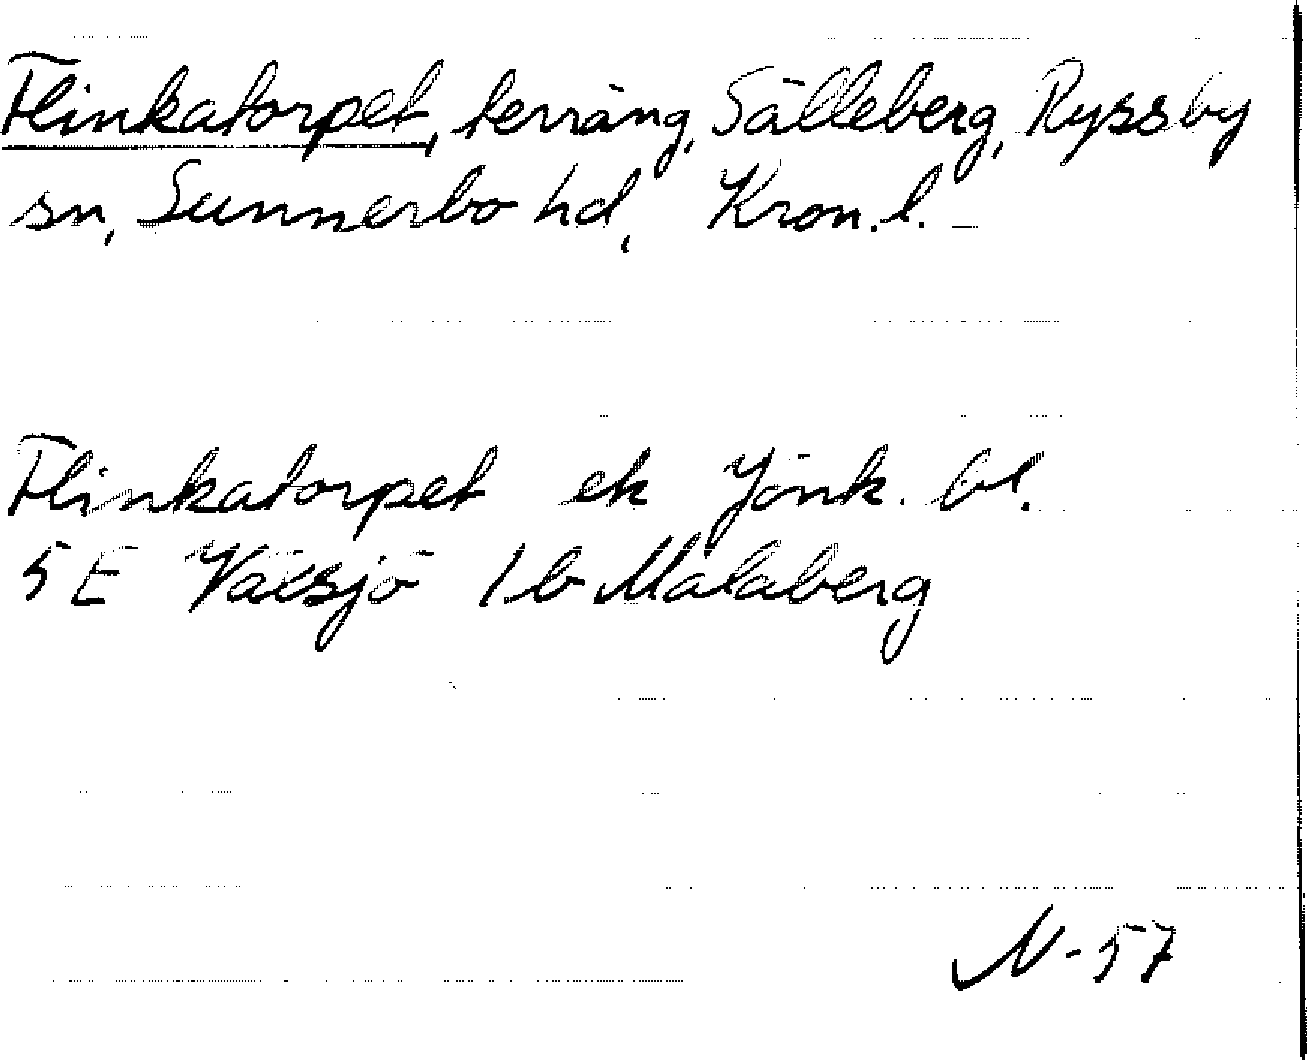 Flinkatorpet, terräng, Sälleberg, Ryssby
sn, Sunnerbo hd, Kron. l. —
Flinkatorpet ek Jönk. bl.
5 E Växsjö 1 b Målaberg
N-57